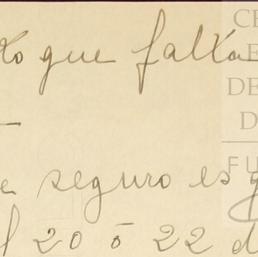 to que falta
e seguro es q
l 20 ó 22 d
CE
E
DE
D
FU